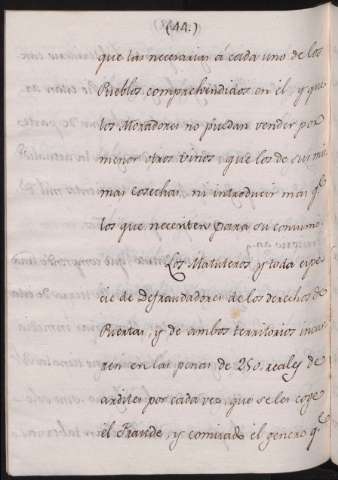 (44.)
que las necesarias á cada uno de los
Pueblos comprehendidos en él, y que
los Moradores no puedan vender por
menor otros vinos, que los de sus mis
mas cosechas, ni introducir mas qᵉ
los que necesiten para su consumo.
Los Matuteros, y toda espe
cie de defraudadores de los derechos de
Puertas, y de ambos territorios incur
ren en las penas de 250. reales de
ardites por cada vez, que se les coge
el Fraude, y comisado el genero qᵉ